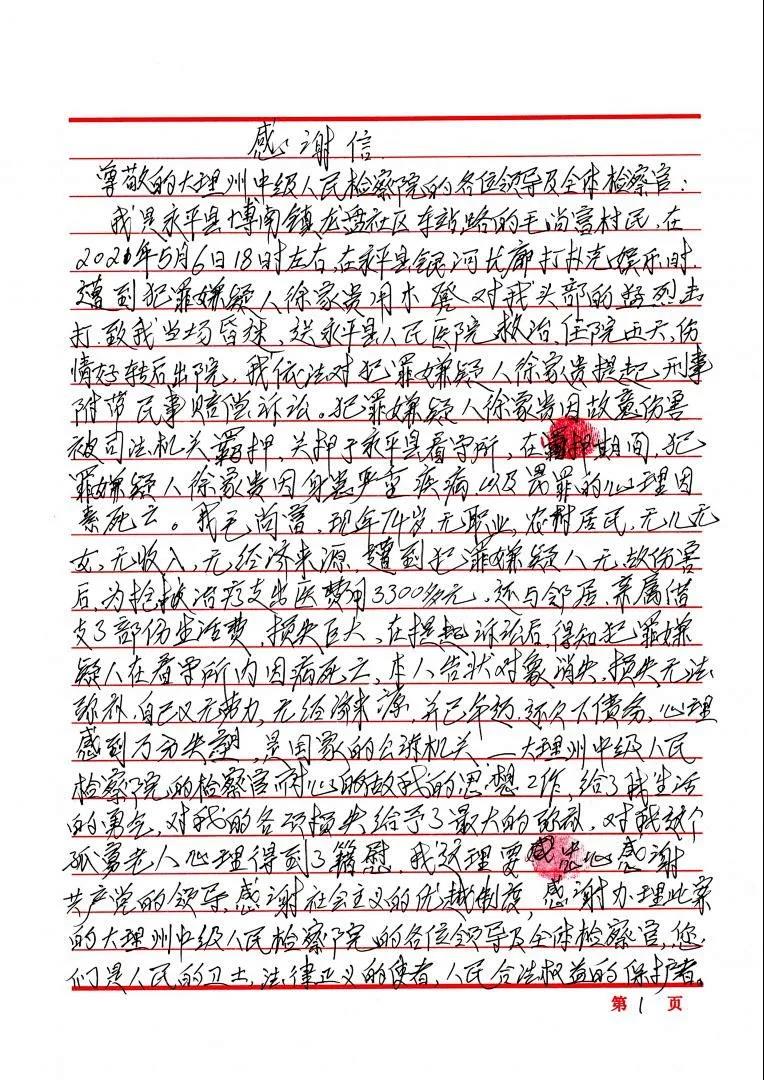 感谢信
尊敬的大理州中级人民检察院的各位领导及全体检察官：
我是永平县博南镇龙潭社区车站路的毛尚富村民，在
2021年5月6日18时左右，在永平县银河长廊打扑克娱乐时，
遭到犯罪嫌疑人徐家贵用木凳对我头部的猛烈击
打，致我当场昏迷，送永平县人民医院救治，住院五天，伤
情好转后出院，我依法对犯罪嫌疑人徐家贵提起刑事
附带民事赔偿诉讼。犯罪嫌疑人徐家贵因故意伤害
被司法机关羁押，关押于永平县看守所，在羁押期间，犯
罪嫌疑人徐家贵因身患严重疾病，以及畏罪的心理因
素死亡。我毛尚富，现年74岁，无职业，农村居民，无儿无
女，无收入，无经济来源，遭到犯罪嫌疑人无故伤害
后，为抢救治疗支出医费用3300多元，还与邻居、亲属借
支了部份生活费，损失巨大，在提起诉讼后，得知犯罪嫌
疑人在看守所内因病死亡，本人告状对象消失，损失无法
弥补，自己又无劳力，无经济来源，并已年迈，还欠下债务，心理
感到万分失望，是国家的公诉机关——大理州中级人民
检察院的检察官耐心的做我的思想工作，给了我生活
的勇气，对我的各项损失给予了最大的弥补，对我这个
孤寡老人心理得到了籍慰，我这理要感衷心感谢
共产党的领导，感谢社会主义的优越制度，感谢办理此案
的大理州中级人民检察院的各位领导及全体检察官，您
们是人民的卫士，法律正义的使者，人民合法权益的保护者。
第1页